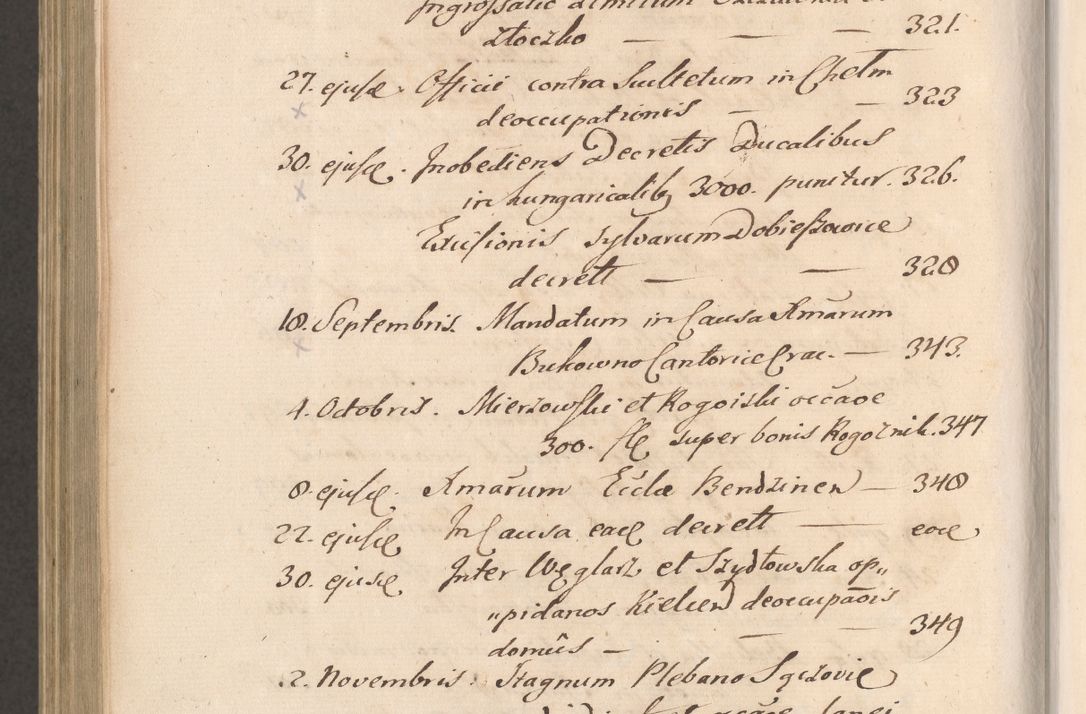 Ingrossatio
złoczko — — — 321.
27. ejusd. Officii contra Scultetum in Chełm
deoccupationis — — 323
30. ejusd. Inobediens Decretis Ducalibus
in hungaricalib 3000. punitur. 326.
Excisionis sylvarum Dobieszowice
decrett — — 328
18. Septembris. Mandatum in Causa Amarum
Bukowno Cantorice Crac. — 343.
4. Octobris. Mierzowski et Rogoiski occaoe
300. fl super bonis Rogoznik. 347
8. ejusd. Amarum Eccla Bendzinen — 348
22. ejusd. In Causa ead decrett — eod
30. ejusd Inter Węglarz et Szydłowska op„
„pidanos Kielcen deoccupaois
domus — — — 349
2. Novembris. Stagnum Plebano